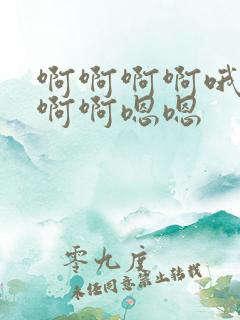 啊啊啊啊哦
啊啊嗯嗯
零九度
未经同意禁止转载